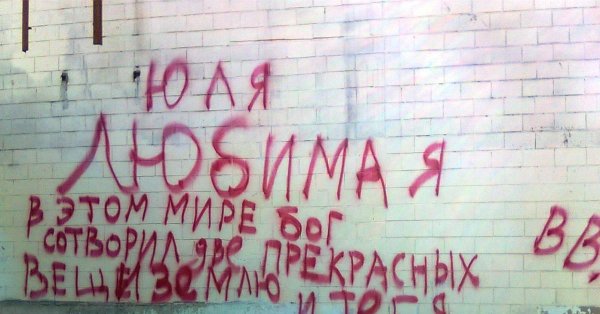 ЮЛЯ
ЛЮБИМАЯ
В ЭТОМ МИРЕ БОГ
СОТВОРИЛ две ПРЕКРАСНЫХ
ВЕЩИ ЗЕМЛЮ
И ТЕБЯ